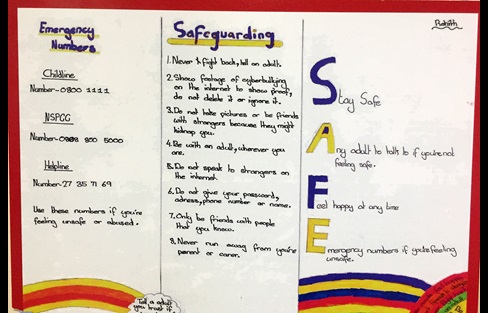 Emergency
Numbers
Childline
Number-0800 1111
NSPCC
Number-0808 800 5000
Helpline
Number-27 35 71 69
Use these numbers if you're
feeling unsafe or abused.
Safeguarding
1. Never fight back, tell an adult.
2. Show footage of cyberbullying
on the internet to show proof,
do not delete it or ignore it.
3. Do not take pictures or be friends
with strangers because they might
kidnap you.
4. Be with an adult, wherever you
are.
5. Do not speak to strangers on
the internet.
6. Do not give your password,
adress, phone number or name.
7. Only be friends with people
that you know.
8. Never run away from you're
parent or carer.
Stay Safe
Any adult to talk to if you're not
feeling safe.
Feel happy at any time
Emergency numbers if you're feeling
unsafe.
Tell a adult
you trust if